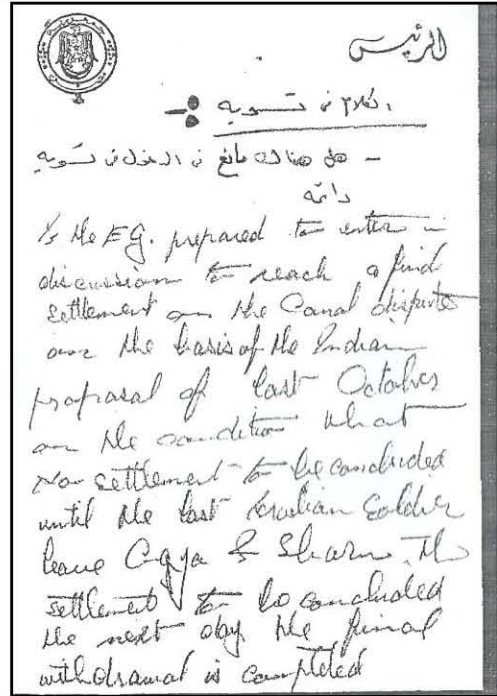 الرئيس
الكلام فى تسويه :-
- هل هناك مانع فى الدخول فى تسويه
دائمه
Is the E.G. prepared to enter in
discussion to reach a final
settlement on the Canal dispute
on the basis of the Indian
proposal of last October
on the condition that
no settlement to be concluded
until the last Israelian soldier
leave Gaza & Sharm. The
settlement to be concluded
the next day the final
withdrawal is completed